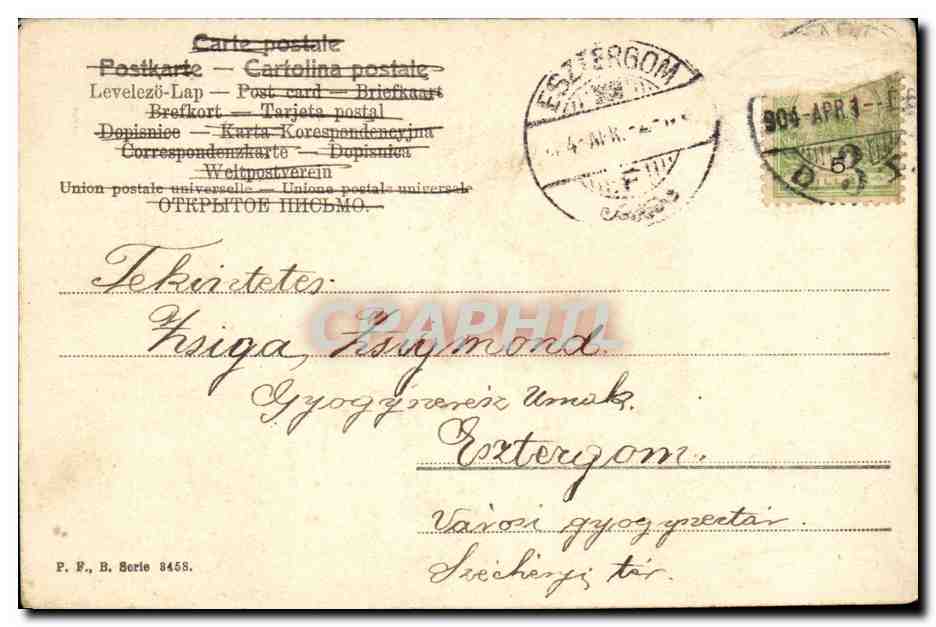 Carte postale
Postkarte — Cartolina postale
Levelező-Lap — Post card — Briefkaart
Brefkort — Tarjeta postal
Dopisnice — Karta Korespondencyjna
Correspondenzkarte — Dopisnica
Weltpostverein
Union postale universelle — Unione postale universale
ОТКРЫТОЕ ПИСЬМО.
ESZTERGOM
904-APR.1
5
Tekintetes
Zsiga, Zsigmond.
CPAPHIL
Gyogyszerész Urnak.
Esztergom.
Városi gyogyszertár.
Széchenyi tér.
P. F., B. Serie 3458.